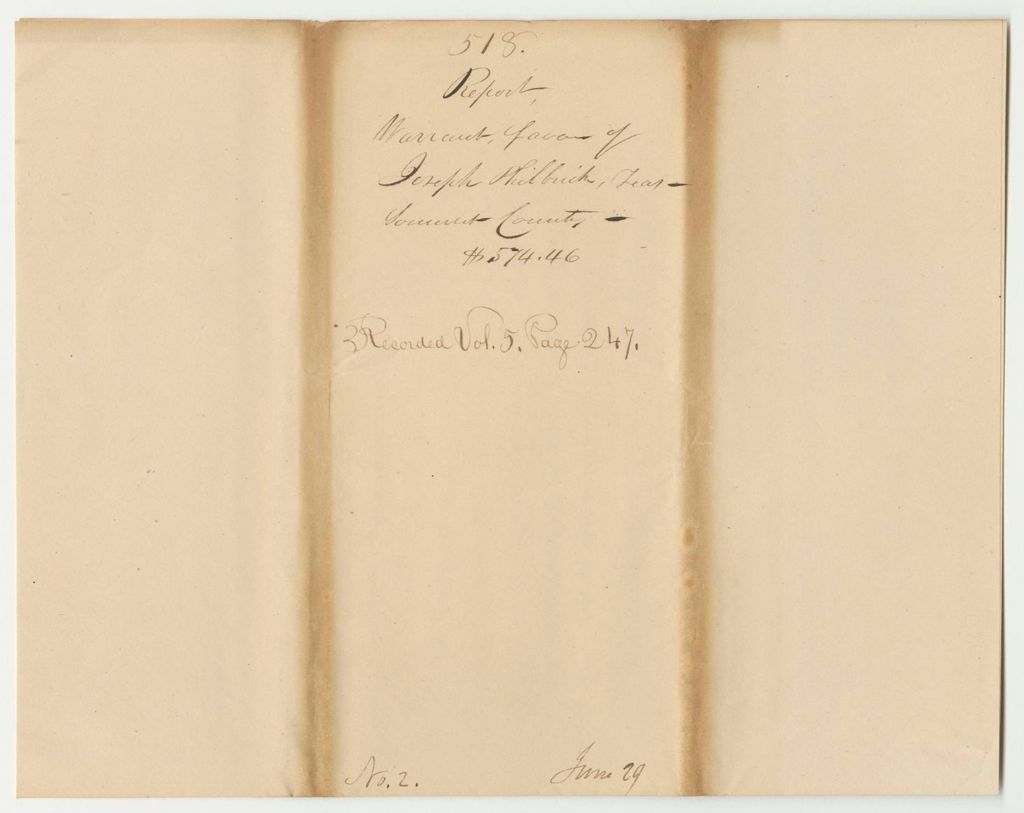 518.
Report,
Warrant, favor of
Joseph Philbrick, Treas-
Somerset County, -
$574.46
Recorded Vol. 5. Page 247.
No. 2.
June 29